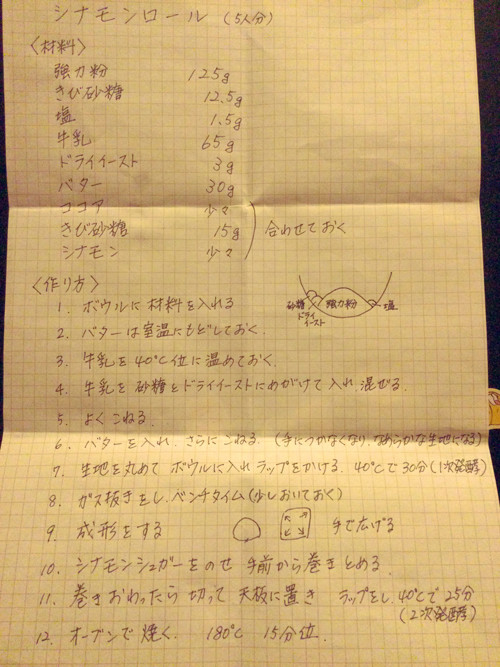 シナモンロール (5人分)
〈材料〉
強力粉 125g
きび砂糖 12.5g
塩 1.5g
牛乳 65g
ドライイースト 3g
バター 30g
ココア 少々
きび砂糖 15g 合わせておく
シナモン 少々
〈作り方〉
1. ボウルに材料を入れる
砂糖 強力粉 塩
ドライイースト
2. バターは室温にもどしておく.
3. 牛乳を40℃位に温めておく.
4. 牛乳を砂糖とドライイーストにめがけて入れ.混ぜる.
5. よくこねる.
6. バターを入れ.さらにこねる. (手につかなくなり.なめらかな生地になる)
7. 生地を丸めてボウルに入れラップをかける. 40℃で30分(1次発酵)
8. ガス抜きをし.ベンチタイム(少しおいておく)
9. 成形をする 手で広げる
10. シナモンシュガーをのせ 手前から巻きとめる.
11. 巻きおわったら 切って 天板に置き ラップをし.40℃で25分
(2次発酵)
12. オーブンで焼く. 180℃ 15分位.